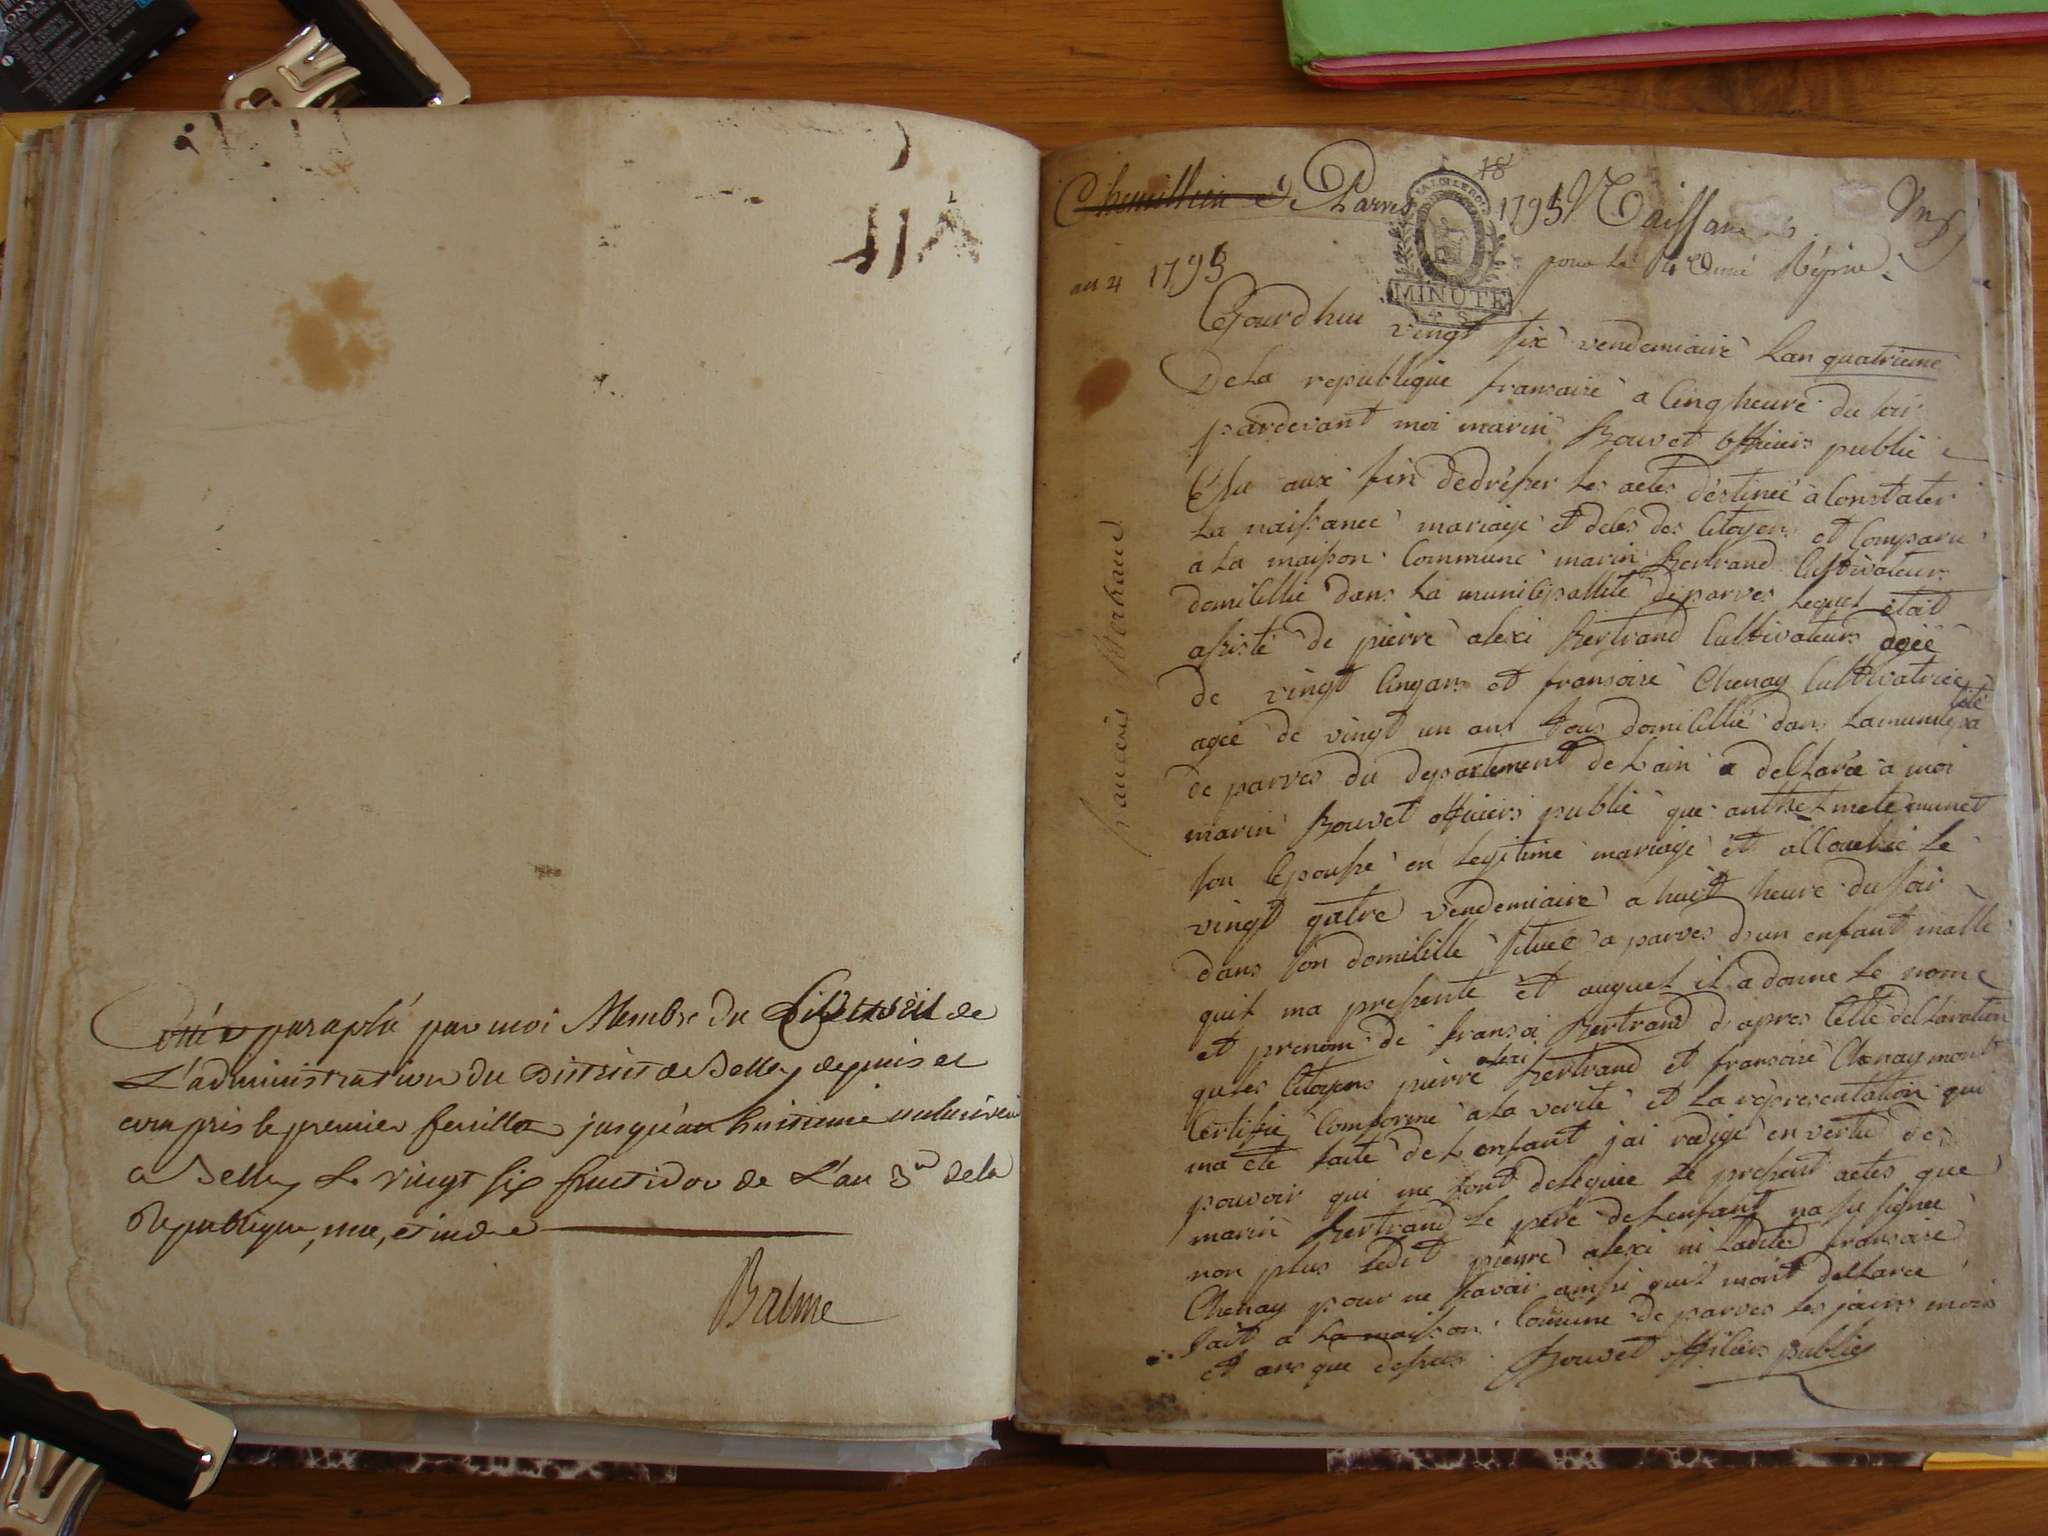 Cotté et paraphé par moi Membre du Directoire de
L'administration du District de Belley depuis et
compris le premier feuillet jusqu'au huitieme inclusivem
a Belley le vingt six fructidor de L'an 3e de la
Republique, une, et indle
Balme
18
de Parves 1795 Naissances
Un
pour la 4 Année Répue
an 4 1795
MINUTE
Cejourdhui vingt six vendemiaire Lan quatrieme
De La republique fransaise a Cinq heure du soir
pardevant moi marin Bouvet officiers public
Elu aux fin dedresser Les actes destinée a Constater
La naissance mariage et deces des Citoyens et Comparu
a La maison Commune marin Bertrand Cultivateurs
domicillié dans La municipallité de parves Lequel était
assisté de pierre alexi Bertrand Cultivateurs agée
de vingt Cinq ans et fransoise Chenay Cultivatrice
agée de vingt un ans tous domicillié dans Lamunicipa
lité
de parves du departement de Lain a declarée a moi
marin Bouvet officiers public que anthelmete munet
son Epouse en Legitime mariage et allouchée Le
vingt quatre vendemiaire a huit heure du soir
dans son domicille situeé a parves dun enfant malle
quil ma presenté et auquel il a donne Le nom
et prenom de fransoi Bertrand d apres Cette declaration
alexi
que Les Citoyens pierre Bertrand et fransoise Chenay mont
Certifié Comforme a La verité et La representation qui
ma été faite de Lenfant jai redigé en vertu des
pouvoir qui me sont deleguée Le present actes que
marin Bertrand Le pere deLenfant na su signée
non plus Ledit pierre alexi ni Ladite fransoise
Chenay pour ne savoir ainsi quil mont declarée
fait a La maison Comune de parves Les jours mois
et ans que dessus Bouvet officiers public
francois Bertrand